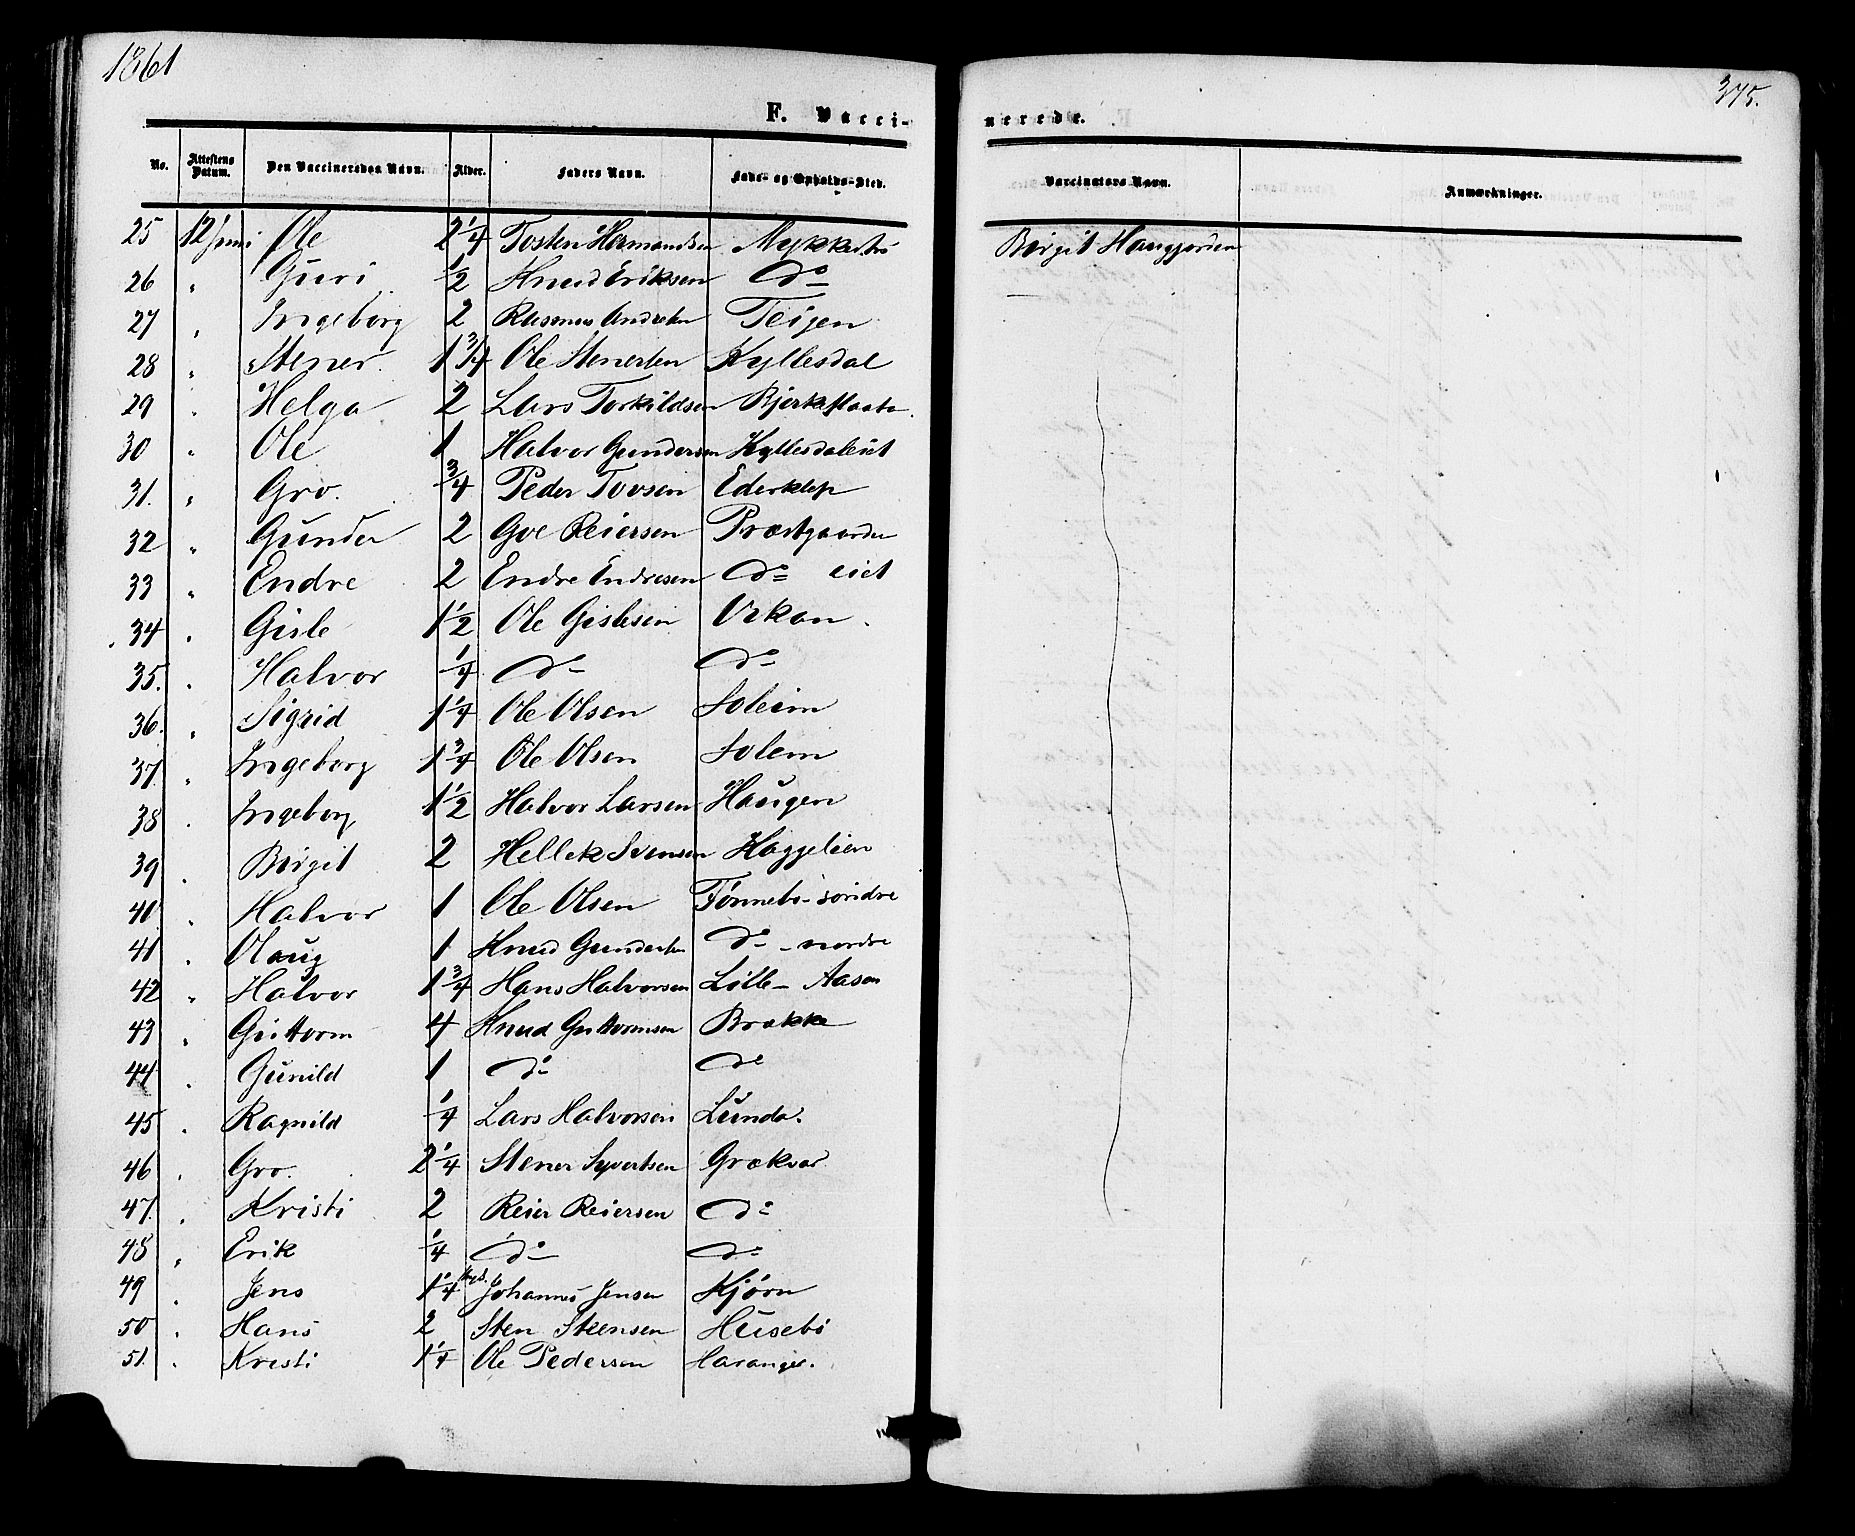 1861
375.
F. Vacci-
nerede.
No. Attestens Datum. Den Vaccineredes Navn. Alder. Faders Navn. Føde- og Opholds-Sted. Vaccinators Navn. Anmærkninger.
25 12 juni Ole 2 1/4 Tosten Hermandsen Mykkestu Birgit Hauggarden
26 " Guri 1/2 Knud Eriksen do
27 " Ingeborg 2 Rasmus Andersen Teigen
28 " Stener 1 3/4 Ole Stenersen Kyllesdal
29 " Helga 2 Lars Torkildsen Bjerkeflaata
30 " Ole 1 Halvor Gundersen Kyllesdaleiet
31. " Gro. 3/4 Peder Tovsen Ederklep
32 " Gunder 2 Goe Reiersen Præstgaarden
33 " Endre 2 Endre Endresen do eiet
34 " Gisle 1 1/2 Ole Gislesen Urkan
35. " Halvor 1/4 do do
36. " Sigrid 1 1/4 Ole Olsen Soleim
37. " Ingeborg 1 3/4 Ole Olsen Solem
38 " Ingeborg 1 1/2 Halvor Larsen Haugen
39 " Birgit 2 Hellek Svensen Haggelien
40 " Halvor 1 Ole Olsen Tønnebø-søndre
41 " Olaug 1 Knud Gundersen do - nordre
42 " Halvor 1 3/4 Hans Halvorsen Lille- Aasen
43 " Guttorm 4 Knud Guttormsen Brække
44 " Gunild 1 do do
45 " Ragnild 1/4 Lars Halvorsen Lunda.
46 " Gro. 2 1/4 Stener Syvertsen Grækvar
47. " Kristi 2 Reier Reiersen do
48 " Erik 1/4 do do
49 " Jens 1 1/4 Johannes Jensen Kjørn
50 " Hans 2 Sten Steensen Husebø
51. " Kristi 1 1/4 Ole Pedersen Haranger.